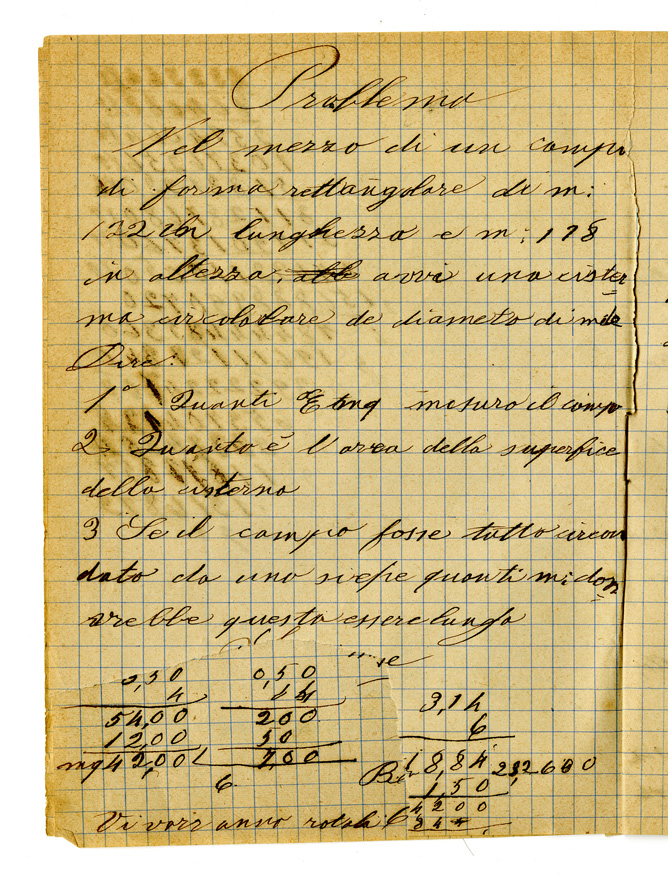 Problema
Nel mezzo di un campo
di forma rettangolare di m:
122 in lunghezza e m: 178
in altezza, avvi una cister
na circolare de diameto di m
Dire:
1° Quanti E mq mesura il campo
2 Quanto è l'area della superfice
della cisterna
3 Se il campo fosse tutto circon
dato da una siepe quanti m: dov
rebbe questa essere lunga
0,50
4
54,00
12,00
mq 42,00
0,50
14
200
50
7,00
6
3,14
6
18,84
1,50
4200